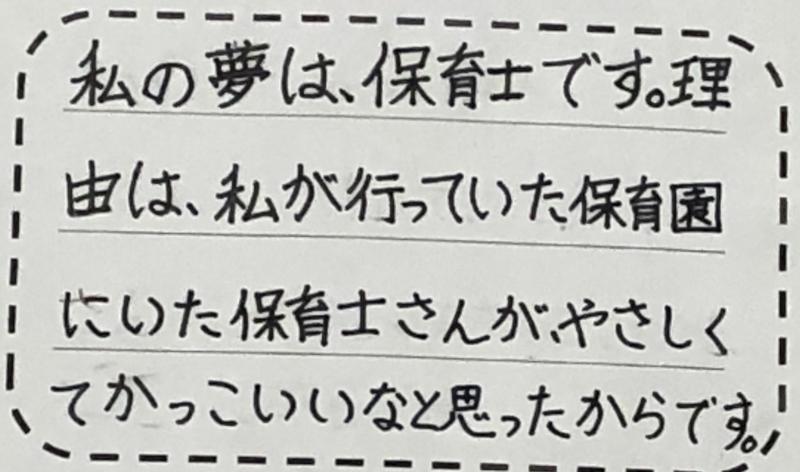 私の夢は、保育士です。理
由は、私が行っていた保育園
にいた保育士さんが、やさしく
てかっこいいなと思ったからです。